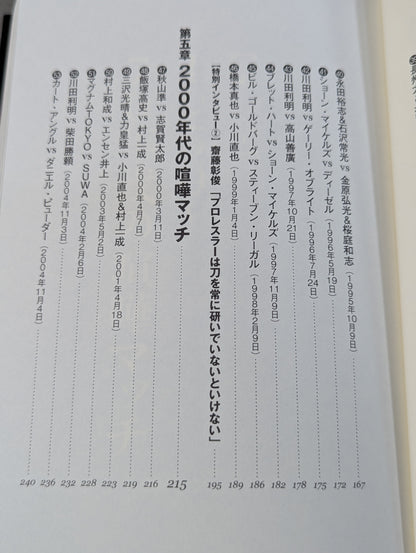 ㊵永田裕志&石沢常光 vs 金原弘光&桜庭和志（1995年10月9日）……167
㊶ショーン・マイケルズ vs ディーゼル（1996年5月19日）……172
㊷川田利明 vs ゲーリー・オブライト（1996年7月24日）……175
㊸川田利明 vs 高山善廣（1997年10月21日）……178
㊹ブレット・ハート vs ショーン・マイケルズ（1997年11月9日）……182
㊺ビル・ゴールドバーグ vs スティーブン・リーガル（1998年2月9日）……186
㊻橋本真也 vs 小川直也（1999年1月4日）……189
【特別インタビュー②】齋藤彰俊「プロレスラーは刀を常に研いでいないといけない」……195
第五章 2000年代の喧嘩マッチ……215
㊼秋山準 vs 志賀賢太郎（2000年3月11日）……216
㊽飯塚高史 vs 村上一成（2000年4月7日）……219
㊾三沢光晴&力皇猛 vs 小川直也&村上一成（2001年4月18日）……223
㊿村上和成 vs エンセン井上（2003年5月2日）……228
51マグナムTOKYO vs SUWA（2004年2月6日）……232
52川田利明 vs 柴田勝頼（2004年11月3日）……236
53カート・アングル vs ダニエル・ピューダー（2004年11月4日）……240